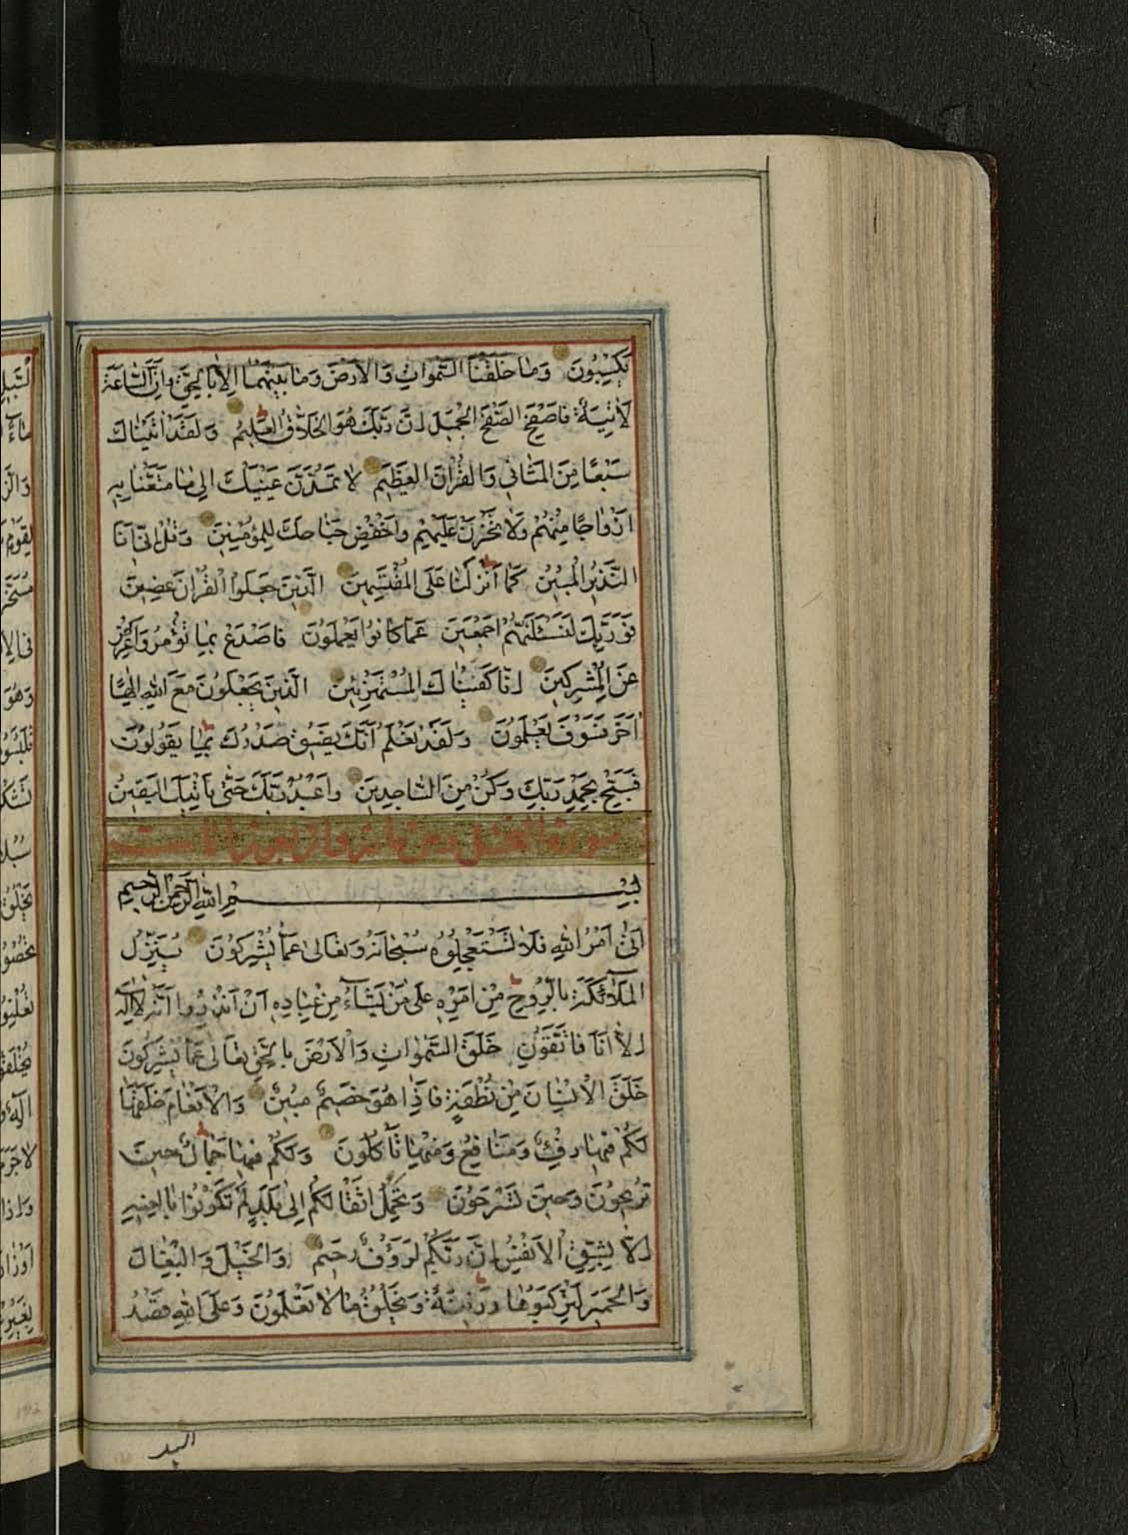 يَكْسِبُونَ وَمَا خَلَقْنَا السَّمٰوَاتِ وَالْاَرْضَ وَمَا بَيْنَهُمَا اِلَّا بِالْحَقِّ وَاِنَّ السَّاعَةَ
لَاٰتِيَةٌ فَاصْفَحِ الصَّفْحَ الْجَمِيلَ اِنَّ رَبَّكَ هُوَ الْخَلَّاقُ الْعَلِيمُ وَلَقَدْ اٰتَيْنَاكَ
سَبْعًا مِنَ الْمَثَانِي وَالْقُرْاٰنَ الْعَظِيمَ لَا تَمُدَّنَّ عَيْنَيْكَ اِلٰى مَا مَتَّعْنَا بِهِ
اَزْوَاجًا مِنْهُمْ وَلَا تَحْزَنْ عَلَيْهِمْ وَاخْفِضْ جَنَاحَكَ لِلْمُؤْمِنِينَ وَقُلْ اِنِّي اَنَا
النَّذِيرُ الْمُبِينُ كَمَا اَنْزَلْنَا عَلَى الْمُقْتَسِمِينَ الَّذِينَ جَعَلُوا الْقُرْاٰنَ عِضِينَ
فَوَرَبِّكَ لَنَسْـَٔلَنَّهُمْ اَجْمَعِينَ عَمَّا كَانُوا يَعْمَلُونَ فَاصْدَعْ بِمَا تُؤْمَرُ وَاَعْرِضْ
عَنِ الْمُشْرِكِينَ اِنَّا كَفَيْنَاكَ الْمُسْتَهْزِئِينَ الَّذِينَ يَجْعَلُونَ مَعَ اللّٰهِ اِلٰهًا
اٰخَرَ فَسَوْفَ يَعْلَمُونَ وَلَقَدْ نَعْلَمُ اَنَّكَ يَضِيقُ صَدْرُكَ بِمَا يَقُولُونَ
فَسَبِّحْ بِحَمْدِ رَبِّكَ وَكُنْ مِنَ السَّاجِدِينَ وَاعْبُدْ رَبَّكَ حَتّٰى يَاْتِيَكَ الْيَقِينُ
سورة النحل
بِسْمِ اللّٰهِ الرَّحْمٰنِ الرَّحِيمِ
اَتٰى اَمْرُ اللّٰهِ فَلَا تَسْتَعْجِلُوهُ سُبْحَانَهُ وَتَعَالٰى عَمَّا يُشْرِكُونَ يُنَزِّلُ
الْمَلٰٓئِكَةَ بِالرُّوحِ مِنْ اَمْرِهِ عَلٰى مَنْ يَشَاءُ مِنْ عِبَادِهِ اَنْ اَنْذِرُوا اَنَّهُ لَا اِلٰهَ
اِلَّا اَنَا فَاتَّقُونِ خَلَقَ السَّمٰوَاتِ وَالْاَرْضَ بِالْحَقِّ تَعَالٰى عَمَّا يُشْرِكُونَ
خَلَقَ الْاِنْسَانَ مِنْ نُطْفَةٍ فَاِذَا هُوَ خَصِيمٌ مُبِينٌ وَالْاَنْعَامَ خَلَقَهَا
لَكُمْ فِيهَا دِفْءٌ وَمَنَافِعُ وَمِنْهَا تَاْكُلُونَ وَلَكُمْ فِيهَا جَمَالٌ حِينَ
تُرِيحُونَ وَحِينَ تَسْرَحُونَ وَتَحْمِلُ اَثْقَالَكُمْ اِلٰى بَلَدٍ لَمْ تَكُونُوا بَالِغِيهِ
اِلَّا بِشِقِّ الْاَنْفُسِ اِنَّ رَبَّكُمْ لَرَؤُفٌ رَحِيمٌ وَالْخَيْلَ وَالْبِغَالَ
وَالْحَمِيرَ لِتَرْكَبُوهَا وَزِينَةً وَيَخْلُقُ مَا لَا تَعْلَمُونَ وَعَلَى اللّٰهِ قَصْدُ
السبيل